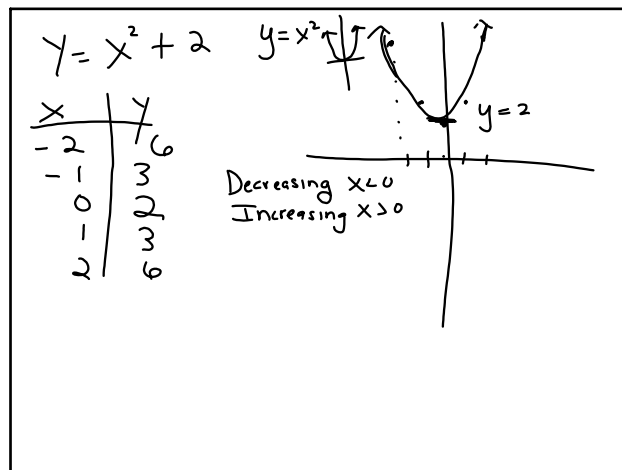 y = x² + 2
y = x²
x y
-2 6
-1 3
0 2
1 3
2 6
y = 2
Decreasing x<0
Increasing x>0